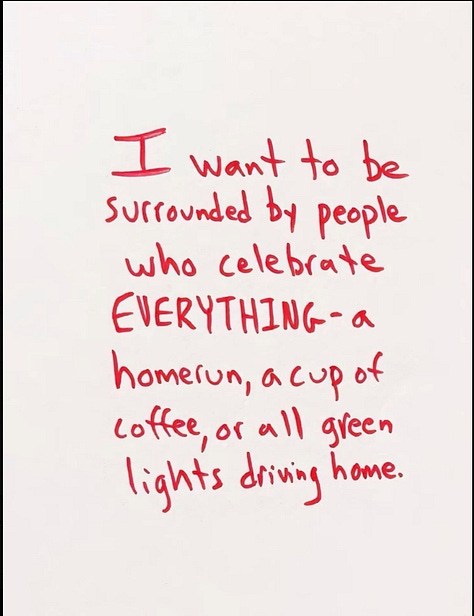 I want to be
surrounded by people
who celebrate
EVERYTHING-a
homerun, a cup of
coffee, or all green
lights driving home.